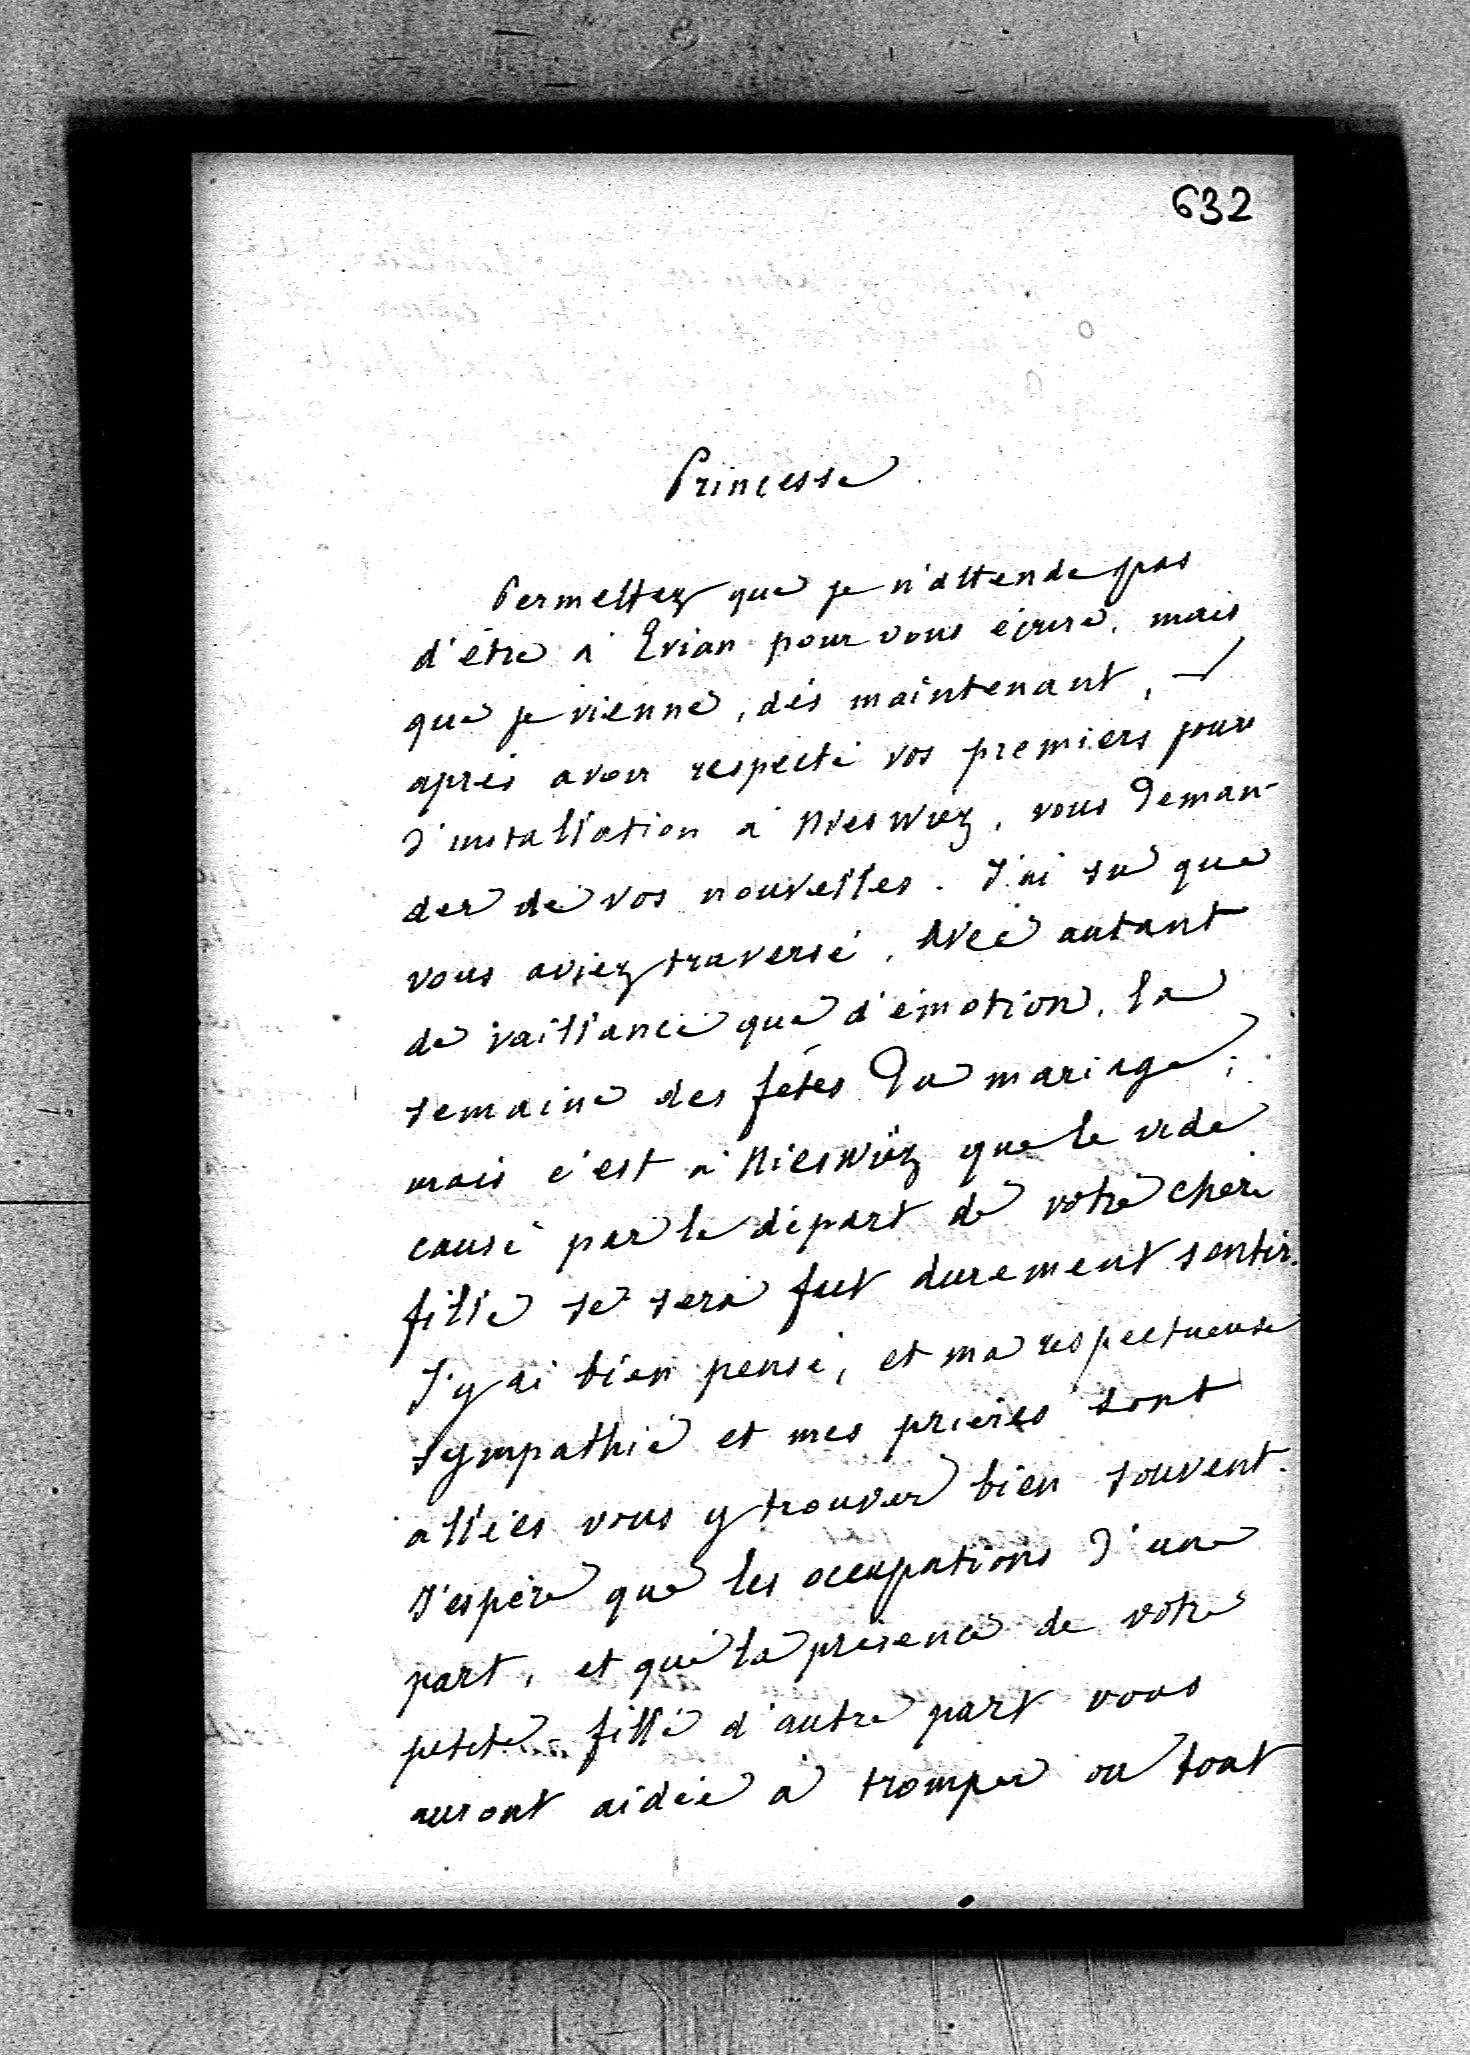 632
Princesse
Permettez que je n'attende pas
d'être à Evian pour vous écrire, mais
que je vienne, dès maintenant, –
après avoir respecté vos premiers jours
d'installation à Nieswiez, vous deman-
der de vos nouvelles. J'ai su que
vous aviez traversé, avec autant
de vaillance que d'émotion, la
semaine des fêtes du mariage;
mais c'est à Nieswiez que le vide
causé par le départ de votre chère
fille se sera fait durement sentir.
J'y ai bien pensé, et ma respectueuse
sympathie et mes prières sont
allées vous y trouver bien souvent.
J'espère que les occupations d'une
part, et que la présence de votre
petite-fille d'autre part vous
auront aidée à tromper ou tout